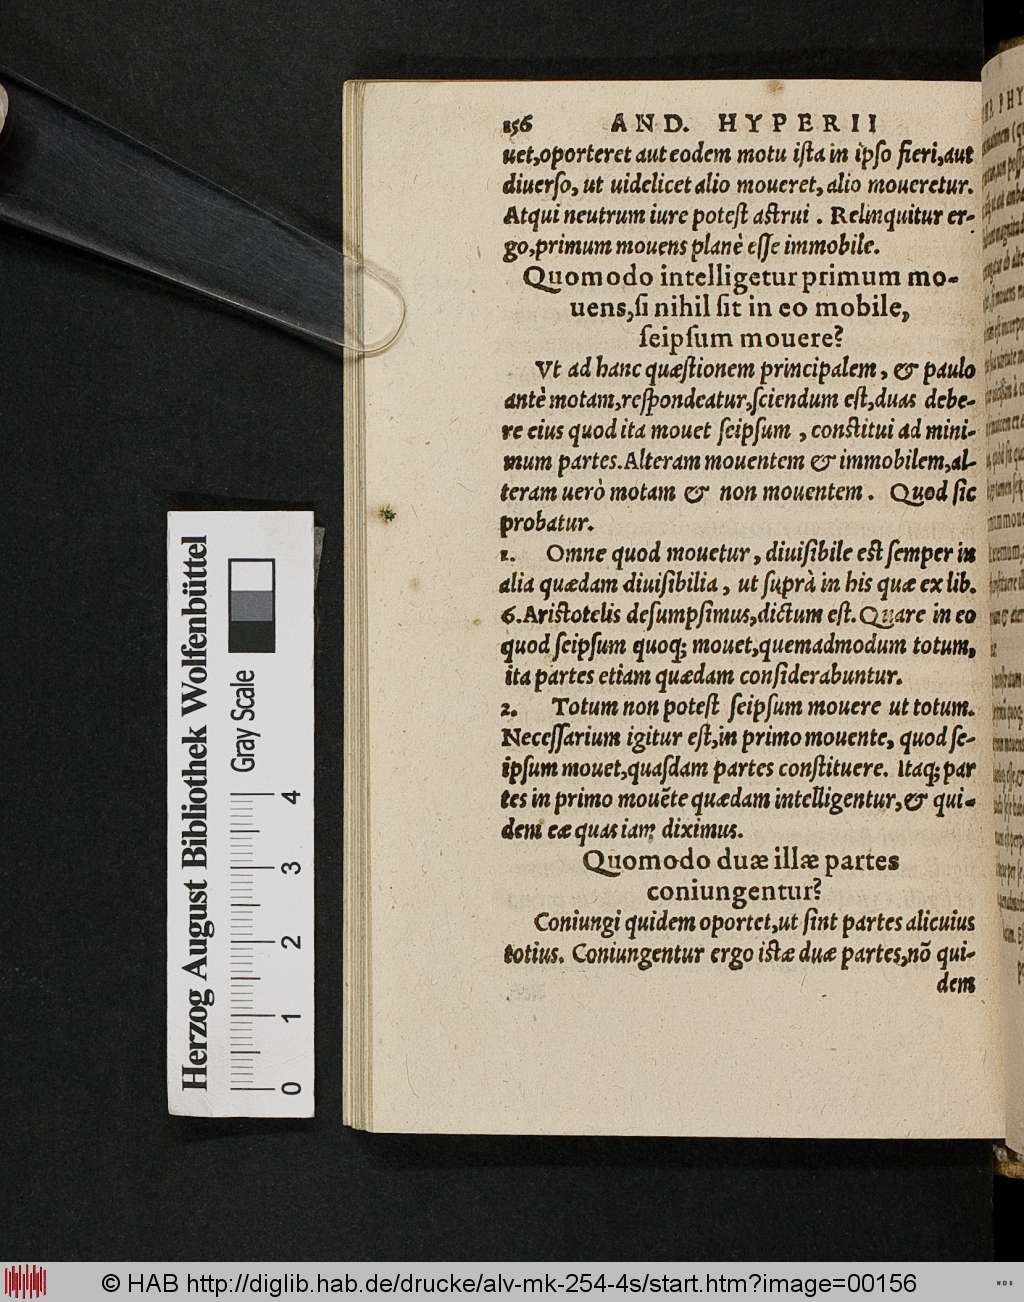 156 AND. HYPERII
uet, oporteret aut eodem motu ista in ipso fieri, aut
diuerso, ut uidelicet alio moueret, alio moueretur.
Atqui neutrum iure potest astrui. Relinquitur er-
go, primum mouens planè esse immobile.
Quomodo intelligetur primum mo-
uens, si nihil sit in eo mobile,
seipsum mouere?
Vt ad hanc quæstionem principalem, & paulo
antè motam, respondeatur, sciendum est, duas debe-
re eius quod ita mouet seipsum, constitui ad mini-
mum partes. Alteram mouentem & immobilem, al-
teram uerò motam & non mouentem. Quod sic
probatur.
1. Omne quod mouetur, diuisibile est semper in
alia quædam diuisibilia, ut suprà in his quæ ex lib.
6. Aristotelis desumpsimus, dictum est. Quare in eo
quod seipsum quoq; mouet, quemadmodum totum,
ita partes etiam quædam considerabuntur.
2. Totum non potest seipsum mouere ut totum.
Necessarium igitur est, in primo mouente, quod se-
ipsum mouet, quasdam partes constituere. Itaq; par
tes in primo mouẽte quædam intelligentur, & qui-
dem eæ quas iam diximus.
Quomodo duæ illæ partes
coniungentur?
Coniungi quidem oportet, ut sint partes alicuius
totius. Coniungentur ergo istæ duæ partes, nõ qui-
dem
Herzog August Bibliothek Wolfenbüttel
Gray Scale
0 1 2 3 4
© HAB http://diglib.hab.de/drucke/alv-mk-254-4s/start.htm?image=00156